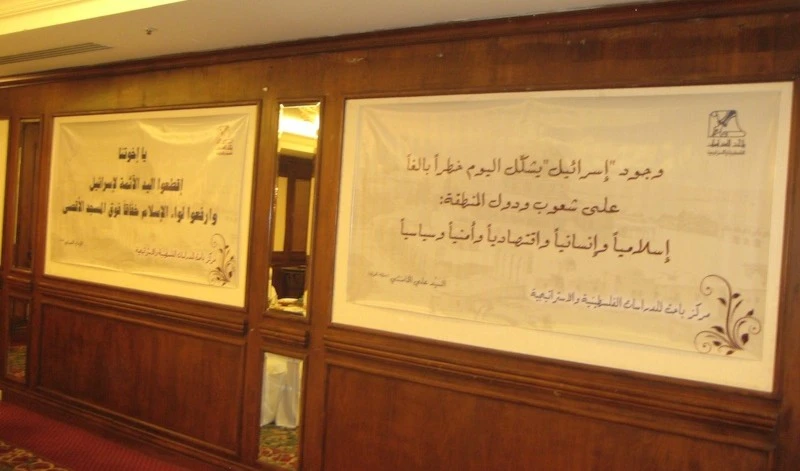 يا إخوتنا
اقطعوا اليد الآثمة لإسرائيل
وارفعوا لواء الإسلام خفاقا فوق المسجد الأقصى
مركز باحث للدراسات الفلسطينية والاستراتيجية
باحث للدراسات
وجود "إسرائيل" يشكّل اليوم خطراً بالغاً
على شعوب ودول المنطقة:
إسلامياً وإنسانياً واقتصادياً وأمنياً وسياسياً
السيد علي الخامنئي
مركز باحث للدراسات الفلسطينية والاستراتيجية